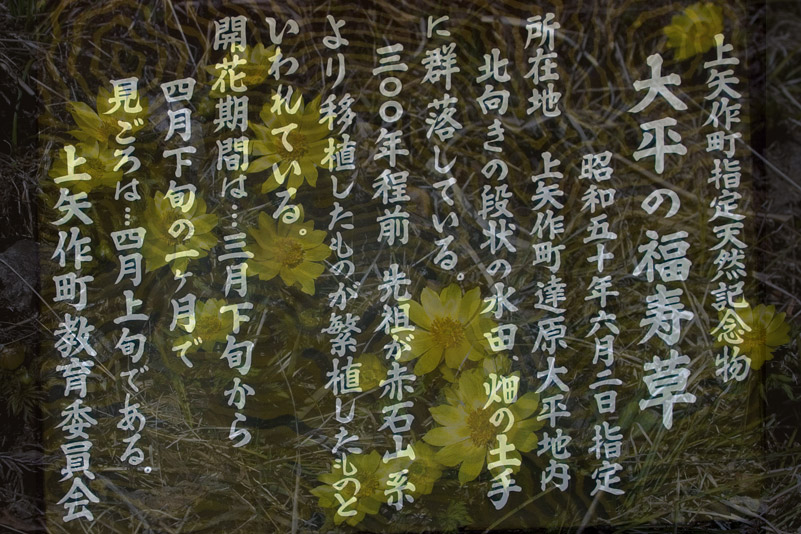 上矢作町指定天然記念物
大平の福寿草
昭和五十年六月二日指定
所在地　上矢作町達原大平地内
北向きの段状の水田.畑の土手
に群落している。
三〇〇年程前　先祖が赤石山系
より移植したものが繁植したものと
いわれている。
開花期間は…三月下旬から
四月下旬の一ヶ月で
見ごろは…四月上旬である。
上矢作町教育委員会